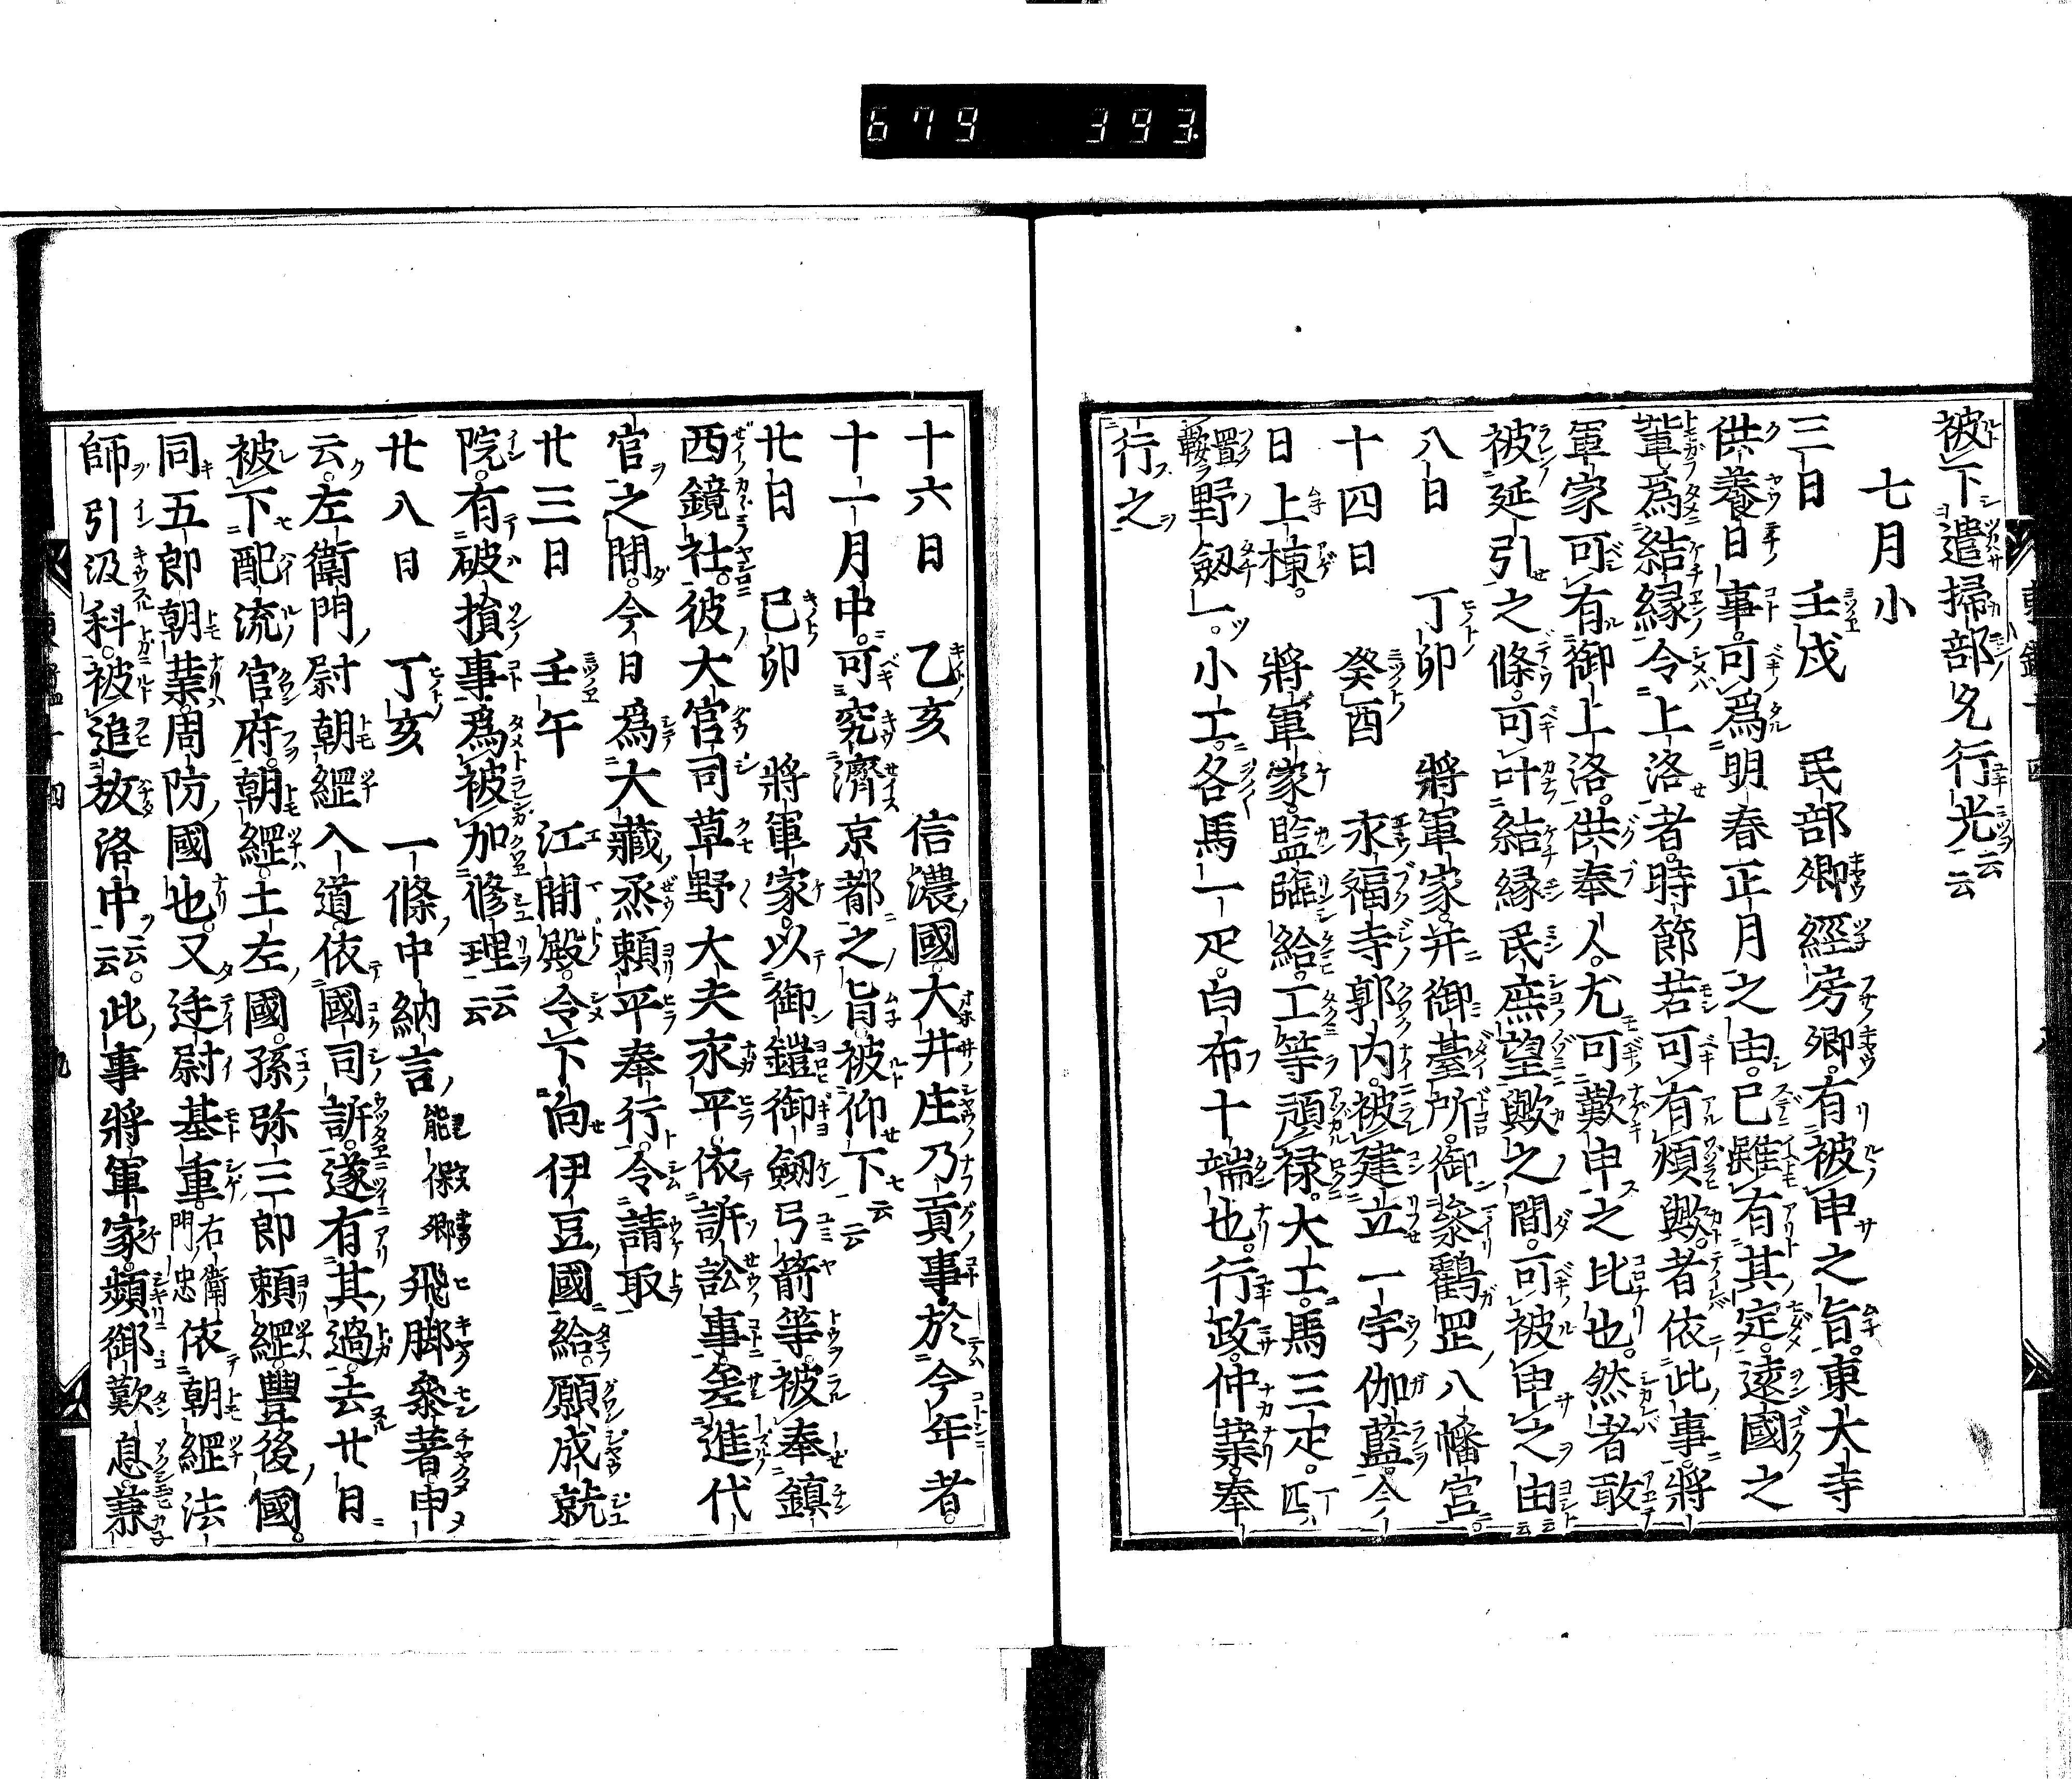 679 393
被下遣掃部允行光云云
七月小
三日 壬戌 民部卿經房卿有被申之旨東大寺
供養日事可爲明春正月之由已雖有其定遠國之
輩爲結縁令上洛者時節若可有煩歟者依此事將
軍家可有御上洛供奉人尤可歎申之比也然者敢
被延引之條可叶結縁民庶望歟之間可被申之由云云
八日 丁卯 將軍家并御臺所御參鸖罡八幡宮
十四日 癸酉 永福寺郭内被建立一宇伽藍今
日上棟 將軍家監臨給工等預禄大工馬三疋一匹ハ
置鞍野劔一小工各馬一疋白布十端也行政仲業奉
行之
十六日 乙亥 信濃國大井庄乃貢事於今年者
十一月中可究濟京都之旨被仰下云云
廿日 已卯 將軍家以御鎧御劔弓箭等被奉鎮
西鏡社彼大宮司草野大夫永平依訴訟事差進代
官之間今日爲大藏丞頼平奉行令請取
廿三日 壬午 江間殿令下向伊豆國給願成就
院有破損事爲被加修理云云
廿八日 丁亥 一條中納言能保卿飛脚參著申
云左衛門尉朝經入道依國司訴遂有其過去廿日
被下配流官府朝經土左國孫弥三郎頼經豊後國
同五郎朝業周防國也又廷尉基重右衛門忠依朝經法
師引汲科被追放洛中云云此事將軍家頻御歎息兼